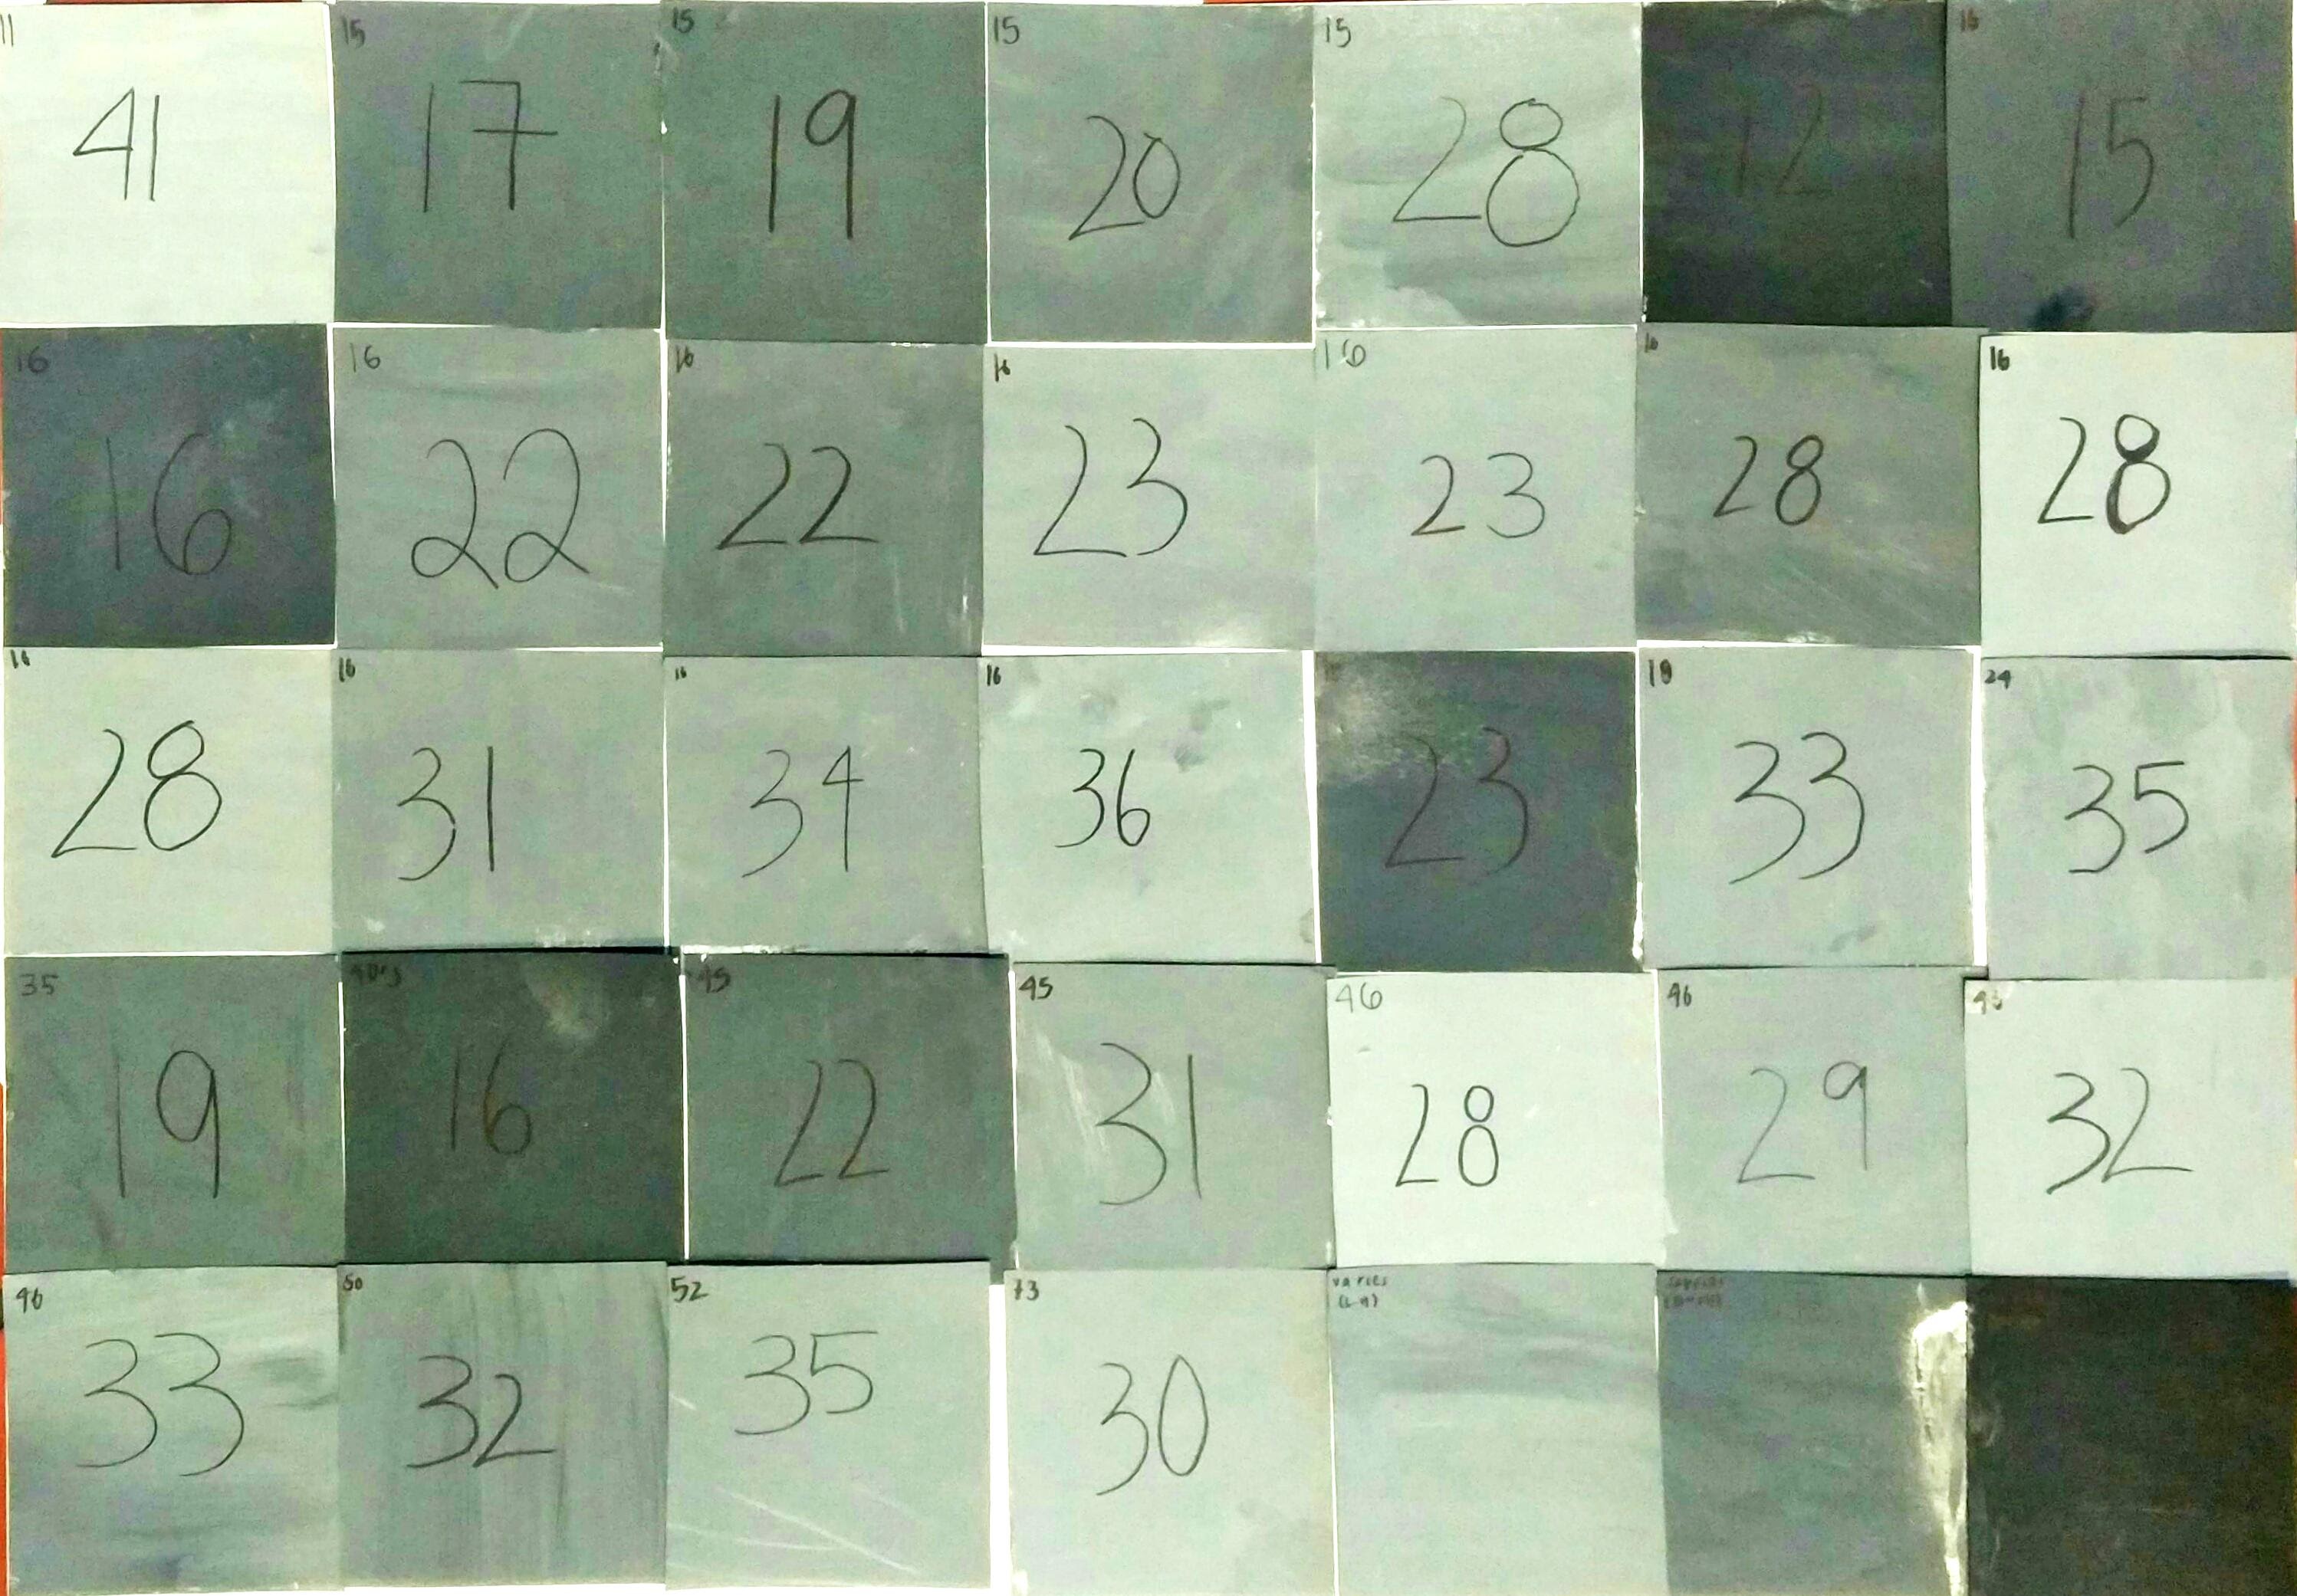 11
41
15
17
15
19
15
20
15
28
12
15
15
16
16
16
22
16
22
16
23
16
23
16
28
16
28
16
28
16
31
16
34
16
36
23
19
33
24
35
35
19
16
45
22
45
31
46
28
46
29
32
46
33
50
32
52
35
73
30
VARIES